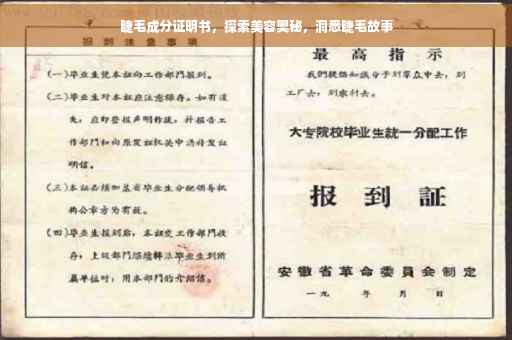 睫毛成分证明书，探索美容奥秘，洞悉睫毛故事
报到注意事项
(一)毕业生凭本证向工作部门报到。
(二)毕业生对本证应注意保存。如有遗
失，应即登报声明作废，并报告工
作部门和向原发证机关申请补发证
明信。
(三)本证必须加盖省毕业生分配领导机
构公章方为有效。
(四)毕业生报到后，本证交工作部门收
存；上级部门继续转派毕业生到所
属单位时，用本部门的介绍信。
最高指示
我们提倡知识分子到群众中去，到
工厂去，到农村去。
大专院校毕业生统一分配工作
报到证
安徽省革命委员会制定
一九 年 月 日